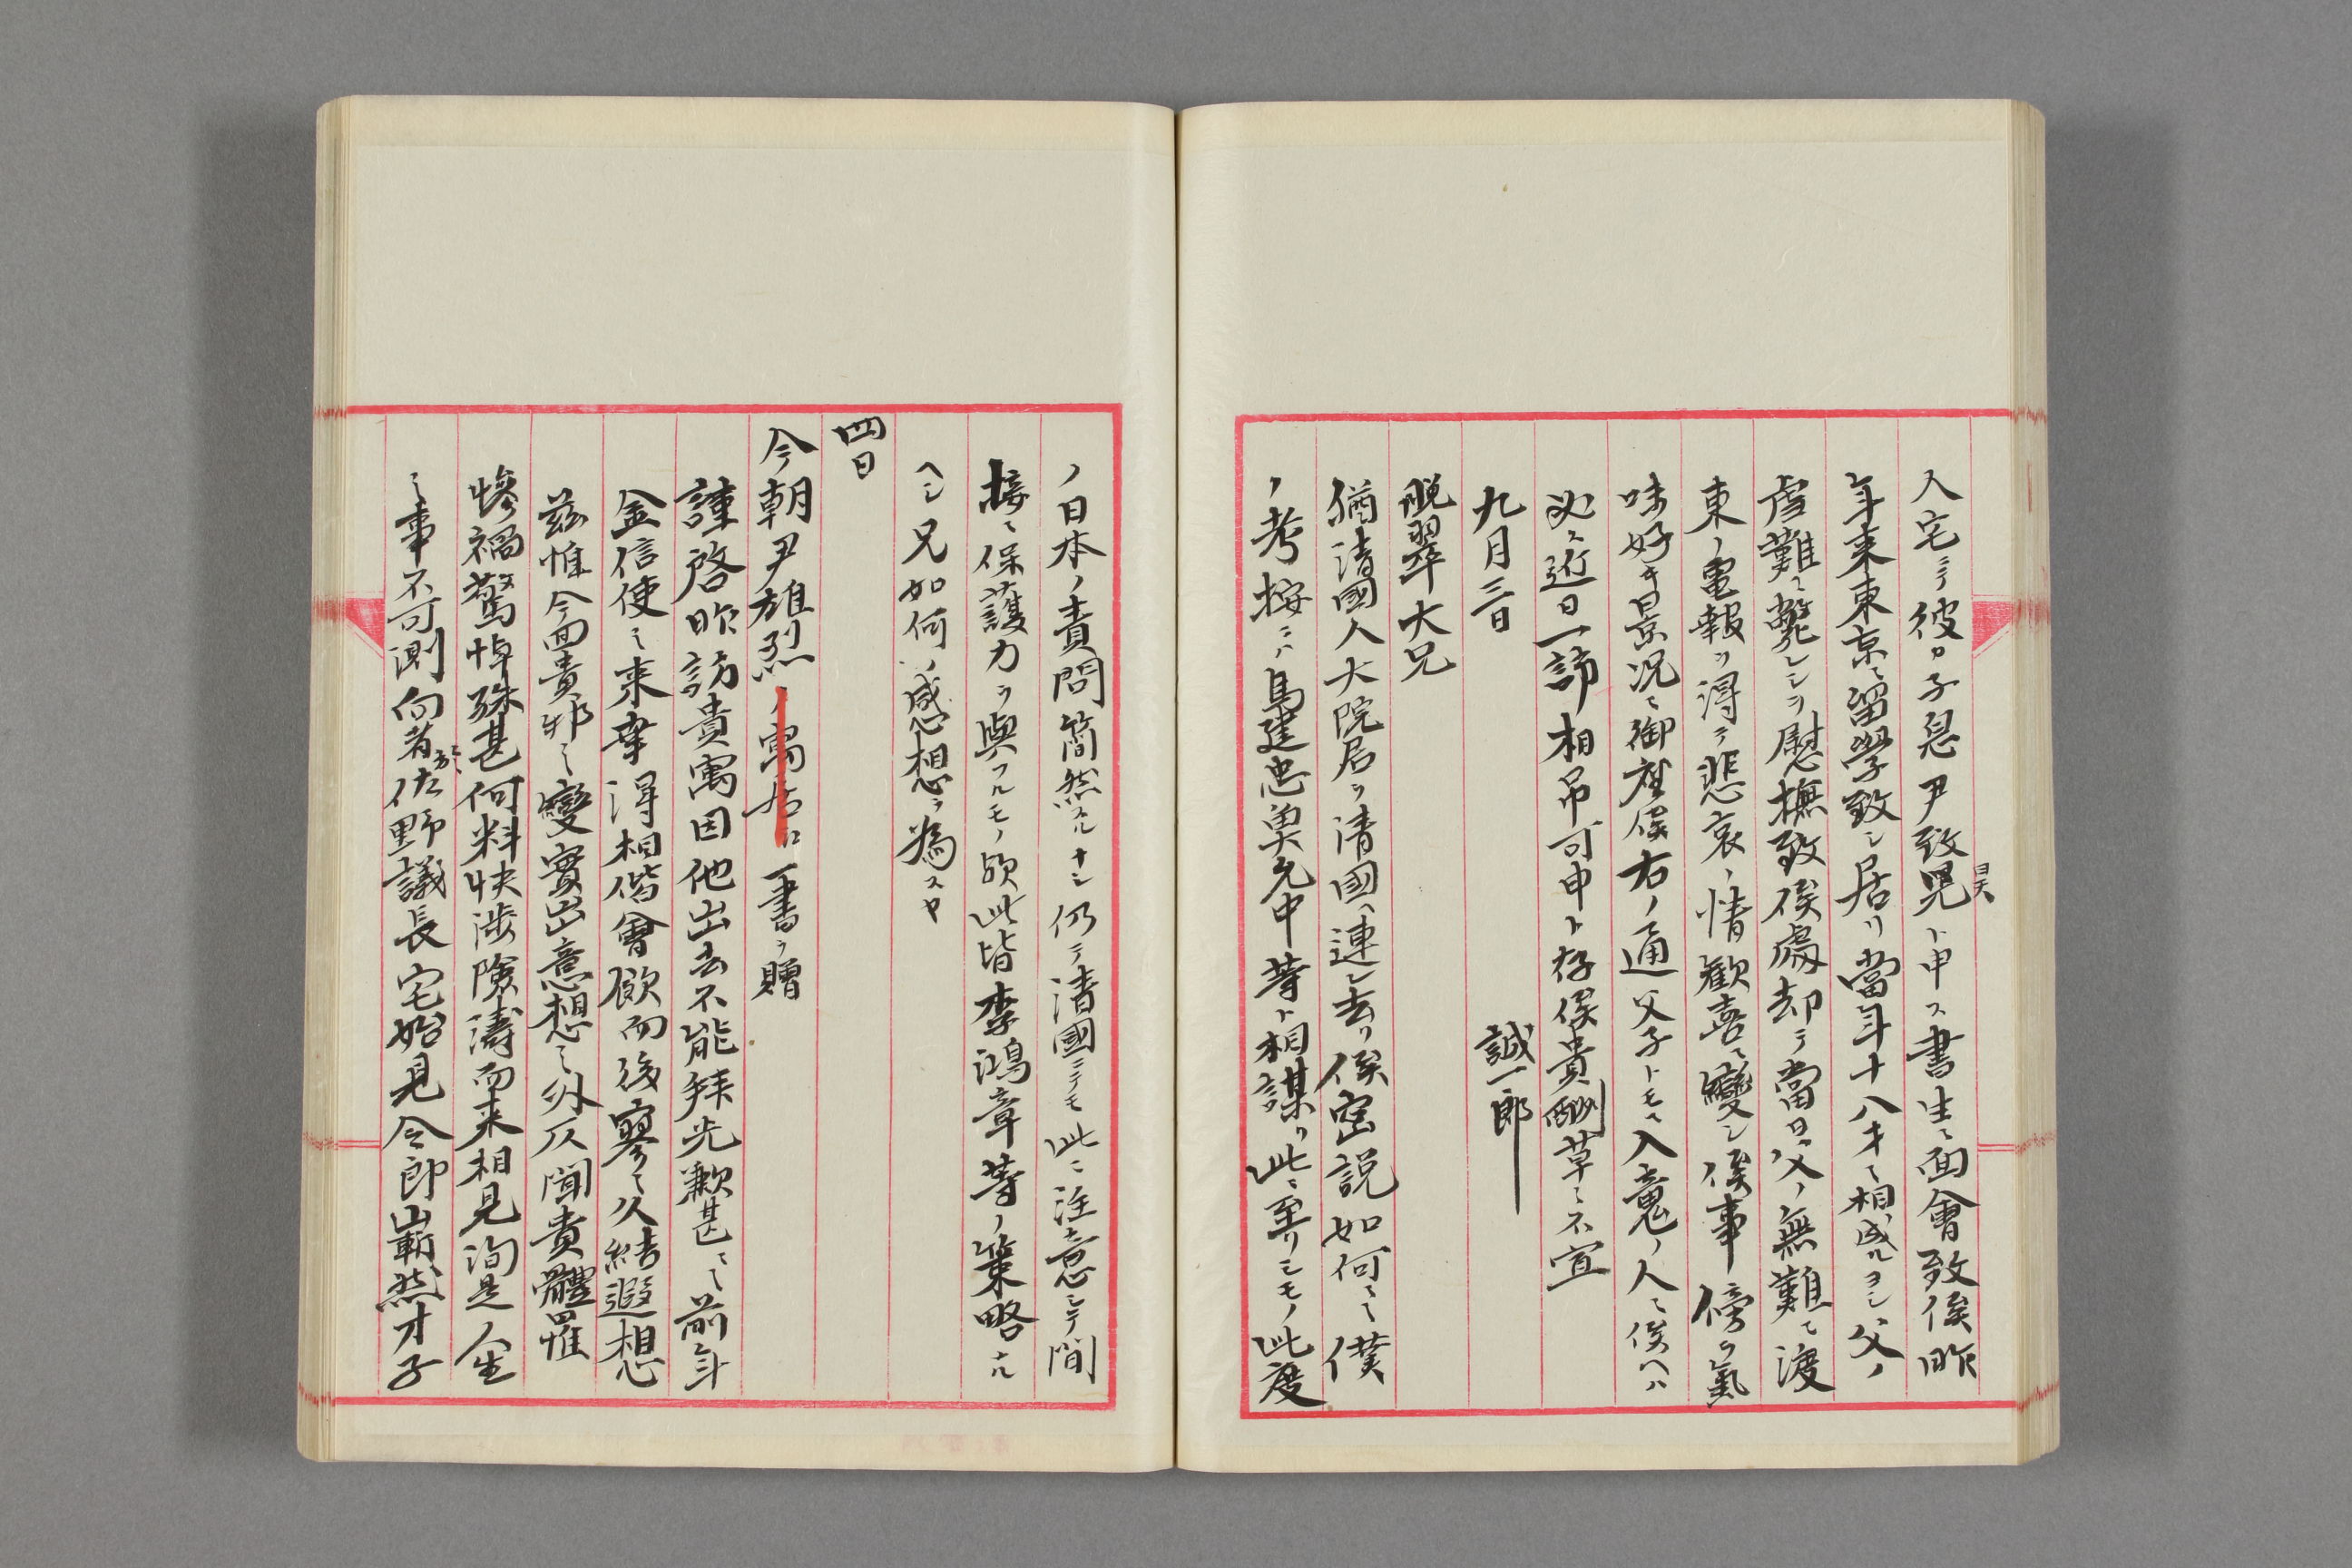 人宅ニテ彼カ子息尹致昊ト申ス書生ニ面會致候昨
年來東京ニ留學致シ居リ當年十八才ニ相成ルヨシ父ノ
虐難ニ斃レシヲ慰撫致候處却テ當日父ノ無難ニテ渡
東ノ電報ヲ得テ悲哀ノ情歡喜ニ變シ候事傍ラ氣
味好キ景況ニ御座候右ノ通父子トモニ入竟ノ人ニ候ヘハ
必ス近日一訪相吊可申ト存候貴酬草々不宣
九月三日
誠一郎
晩翠大兄
猶清國人大院君ヲ清國ヘ連レ去リ候密説如何々々僕
ノ考按ニハ馬建忠奥允中等ト相謀リ此ニ至リシモノ此度
ノ日本ノ責問簡然タルナシ仍テ清國ニテモ此ニ注意シテ間
接ニ保護力ヲ與フルモノ歟此皆李鴻章等ノ策略ナル
ヘシ兄如何ノ感想ヲ為スヤ
四日
今朝尹雄烈ノ寓居ニ一書ヲ贈
謹啓昨訪貴寓因他出去不能拜光歉甚々々前年
金信使之來幸得相偕會飲而後寥々久結遐想
茲惟今回貴邦之變實出意想之外仄聞貴體罹
慘禍驚悼殊甚何料快渉險濤而来相見洵是人生
之事不可測向者於佐野議長宅始見令郎嶄然才子